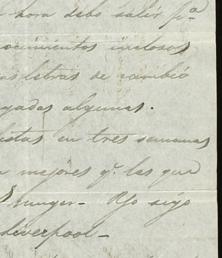 hora debo salir pª
ocumentos inclosos
letras de cambio
gadas algunas.
istas en tres semanas
mejores q. las que
unger - Yo sigo
Liverpool -